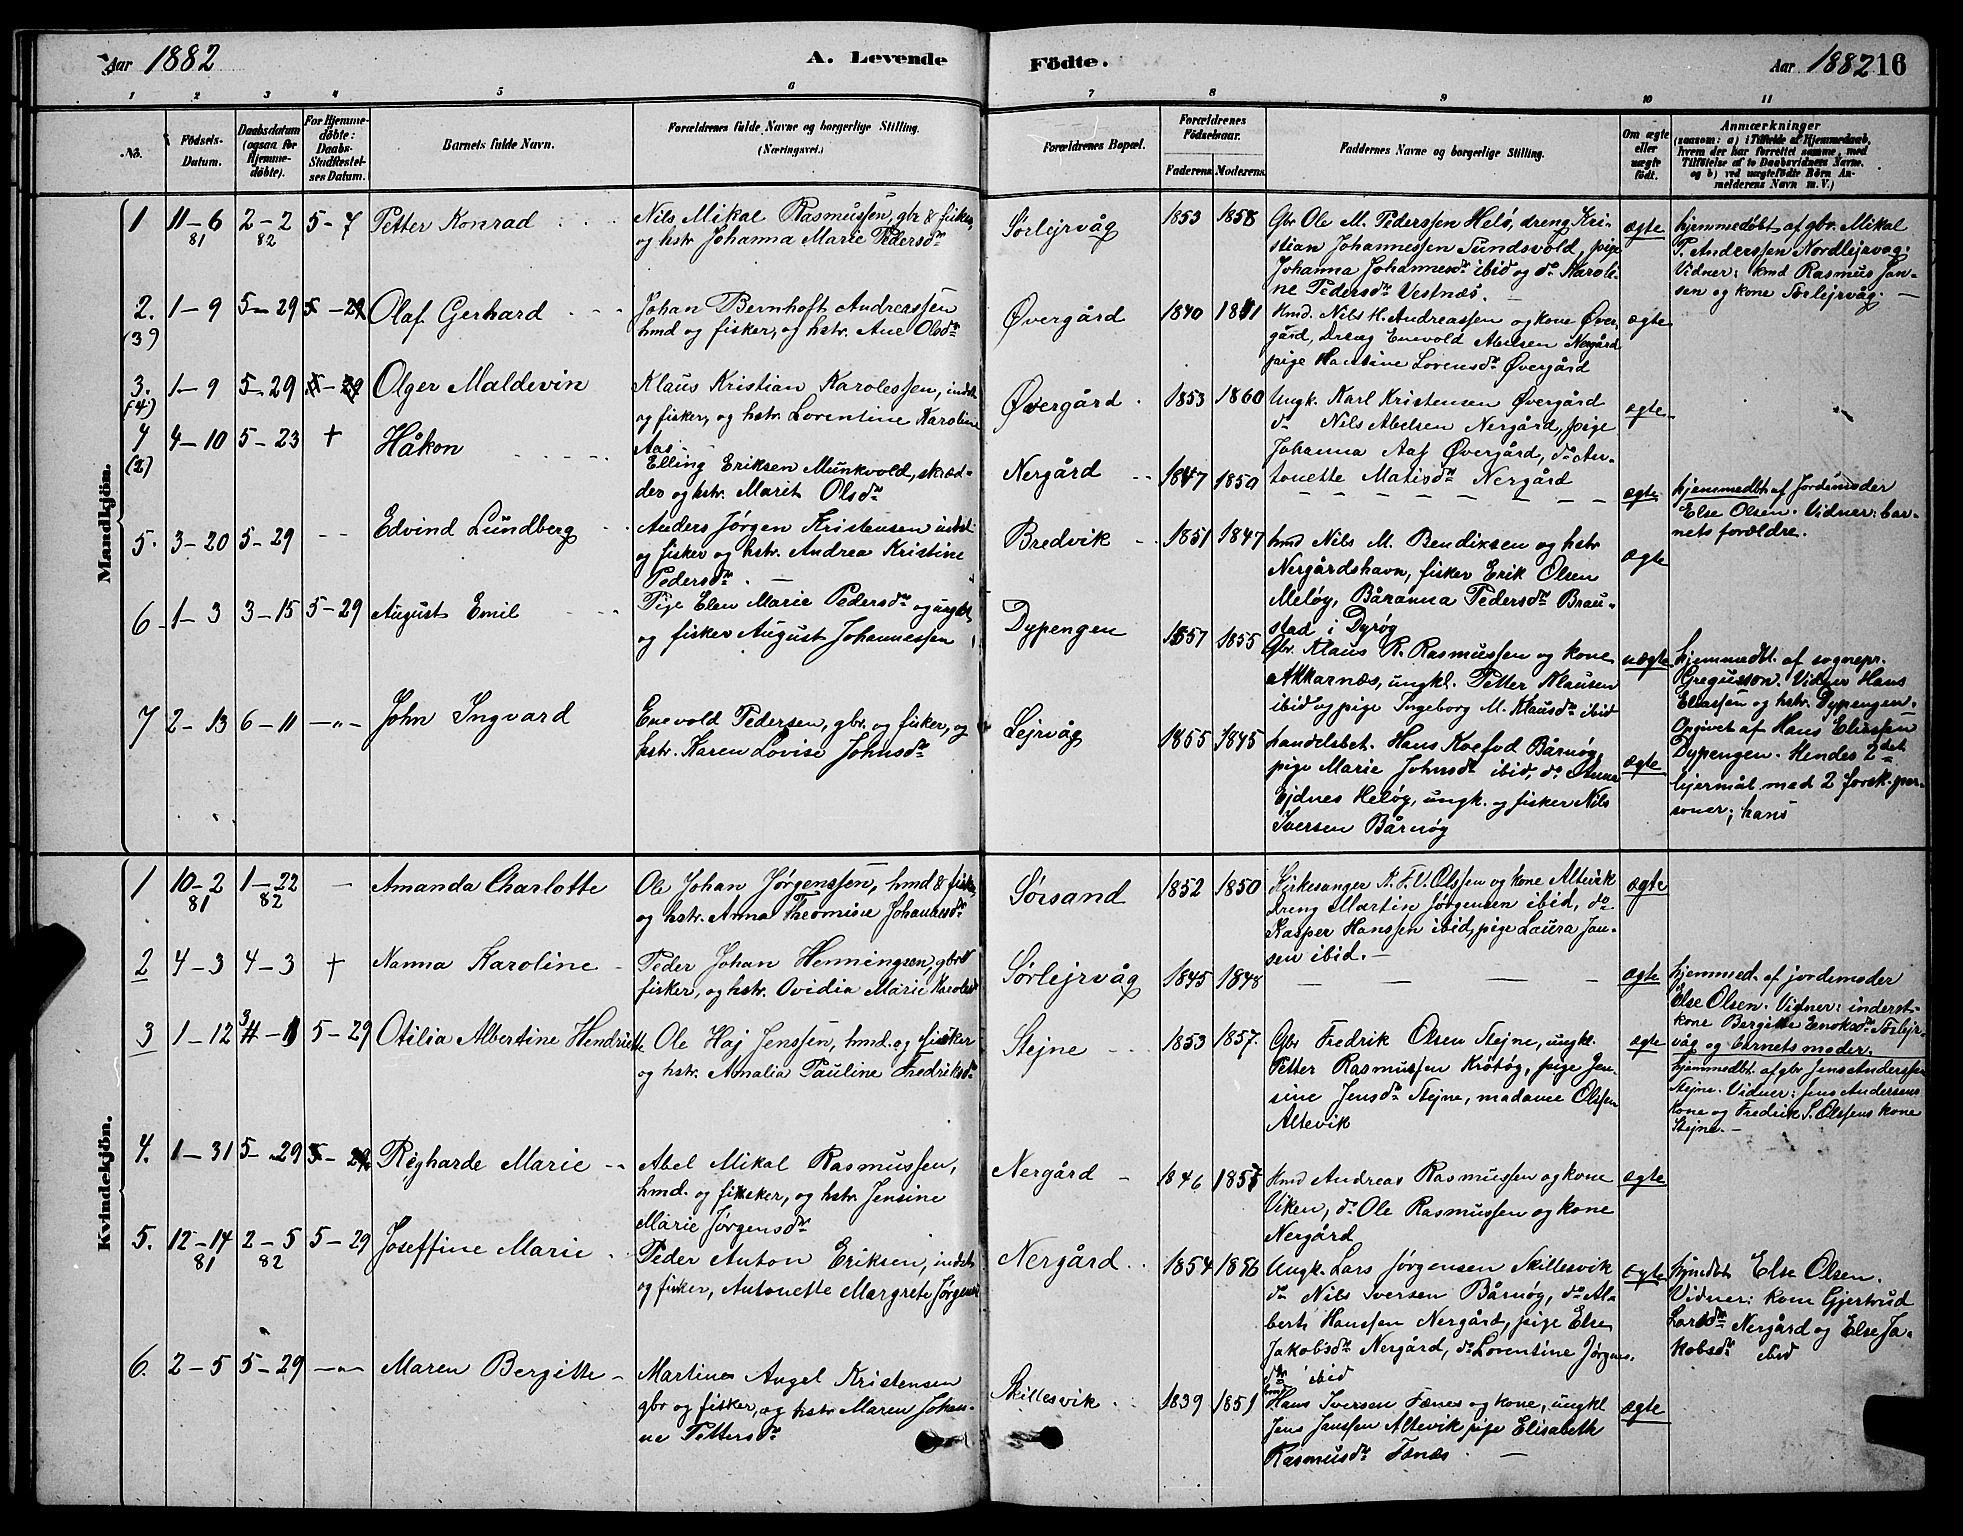 Aar 1882
A. Levende
Födte.
Aar 1882 16
1 2 3 4 5 6 7 8 9 10 11
No.
Födsels-
Datum.
Daabsdatum
(ogsaa for
Hjemme-
döbte).
For Hjemme-
döbte:
Daabs-
Stadfæstel-
ses Datum.
Barnets fulde Navn.
Forældrenes fulde Navne og borgerlige Stilling.
(Næringsvei.)
Forældrenes Bopæl.
Forældrenes
Födselsaar.
Faderens. Moderens.
Faddernes Navne og borgerlige Stilling.
Om ægte
eller
uægte
födt.
Anmærkninger
(saasom: a) i Tilfælde af Hjemmedaab,
hvem der har forrettet samme, med
Tilföielse af to Daabsvidners Navne,
og b) ved uægtefödte Börn An-
melderens Navn m. V.)
Mandkjön.
1 11-6 81 2-2 82 5-7 Petter Konrad
Nils Mikal Rasmussen, gbr & fisker,
og hstr Johanna Marie Pedersdr
Sørlejrvåg 1853 1858
Gbr Ole M. Pederssen Helø, dreng Kri-
stian Johannessen Sundsvold, pige
Johanna Johannesdr ibid og do Karoli-
ne Pedersdr Vestnæs.
ægte
hjemmedøbt af gbr. Mikal
P. Anderssen Nordlejrvåg.
Vidner: kmd Rasmus Jan-
sen og kone Sørlejrvåg.
2. (3) 1-9 5-29 5-29 Olaf Gerhard
Johan Bernhoft Andreassen
hmd og fisker, og hstr. Ane Olsdr
Øvergård 1840 1841
Kmd. Nils H. Andreassen og kone Øver-
gård, Dreng Enevold Abelsen Nergård
pige Hansine Lorensdr Øvergård
ægte
3. (4) 1-9 5-29 5-29 Olger Maldevin
Klaus Kristian Karolessen, indst
og fisker, og hstr. Lorentine Karoline
Aas
Øvergård 1853 1860
Ungk. Karl Kristensen Øvergård
do Nils Abelsen Nergård, pige
Johanna Aas Øvergård, do An-
tonette Matisdr Nergård
ægte
4 (2) 4-10 5-23 + Håkon
Elling Eriksen Munkvold, skræd-
der og hstr. Marit Olsdr
Nergård 1847 1850
ægte
hjemmedbt af Jordemoder
Else Olsen. Vidner: bar-
nets forældre.
5. 3-20 5-29 Edvind Lundberg
Anders Jørgen Kristensen indst.
og fisker og hstr. Andrea Kristine
Pedersdr.
Bredvik 1851 1847
hmd Nils M. Bendixsen og hstr
Nergårdshavn, fisker Erik Olsen
Meløy, Båranna Pedersdr Brau-
stad i Dyrøg
ægte
6 1-3 3-15 5-29 August Emil
Pige Elen Marie Pedersdr og ungkl
og fisker August Johannessen
Dypengen 1857 1855
Gbr. Klaus R. Rasmussen og kone
Akkarnæs, ungkl. Petter Klausen
ibid og pige Ingeborg M. Klausdr ibid
uægte
hjemmedbt. af sognepr.
Gregusson. Vidner Hans
Eliassen og hstr. Dypengen.
Opgivet af Hans Eliassen
Dypengen. Hendes 2det
lejermål med 2 forsk. per-
soner; hans
7 2-13 6-11 -"- John Ingvard
Enevold Pedersen, gbr. og fisker, og
hstr. Karen Lovise Johnsdr
Lejrvåg 1855 1845
handelsbet. Hans Koefod Bårnøg
pige Marie Johnsdr ibid, do Anna
Ejdnes Heløg, ungk. og fisker Nils
Iversen Bårnøg
ægte
Kvindekjön.
1 10-2 81 1-22 82 - Amanda Charlotte
Ole Johan Jørgenssen, hmd & fisker,
og hstr. Anna Theomine Johannesdr
Sørsand 1852 1850
Kirkesanger A. F. U. Olssen og kone Altevik
Dreng Martin Jørgensen ibid, do
Kasper Hanssen ibid, pige Laura Jan-
sen ibid.
ægte
2 4-3 4-3 + Nanna Karoline
Peder Johan Henningsen, gbr &
fisker, og hstr. Ovidia Marie Karolesdr
Sørlejrvåg 1845 1848
ægte
hjemmed. af jordemoder
Else Olsen. Vidner: inderst-
kone Bergitte Enoksdr Sørlejr-
våg og barnets moder.
3 1-12 5-29 Otilia Albertine Hendriette
Ole Haj Jenssen, hmd. og fisker
og hstr. Amalia Pauline Fredriksdr
Stejne 1853 1857.
Gbr Fredrik Olsen Stejne, ungkl.
Petter Rasmussen Krøtøg, pige Jen-
sine Jensdr Stejne, madame Olssen
Altevik
ægte
hjemmedbt. af gbr Jens Anderssen
Stejne. Vidner: Jens Anderssens
kone og Fredrik S. Olssens kone
Stejne.
4. 1-31 5-29 5-29 Righarde Marie
Abel Mikal Rasmussen,
hmd. og fisker, og hstr. Jensine
Marie Jørgensdr
Nergård 1846 1857
Kmd Andreas Rasmussen og kone
Viken, do Ole Rasmussen og kone
Nergård
ægte
5. 12-14 81 2-5 82 5-29 Joseffine Marie
Peder Anton Eriksen, indst
og fisker, Antonette Margrete Jørgensdr
Nergård 1854 1856
Ungk. Lars Jørgensen Skillesvik
do Nils Iversen Bårnøg, do Al-
bert Hanssen Nergård, pige Else
Jakobsdr Nergård, do Lorentine Jørgens-
dr ibid
ægte
hjmdbt Else Olsen.
Vidner: kone Gjertrud
Larsdr Nergård og Else Ja-
kobsdr ibid
6. 2-5 5-29 -"- Maren Bergitte
Martines Angel Kristensen
gbr og fisker, og hstr Maren Johan-
ne Pettersdr
Skillesvik 1839 1851
Hans Iversen Fænes og kone, ungkl
Jens Janssen Altevik pige Elisabeth
Rasmusdr Fænæs
ægte